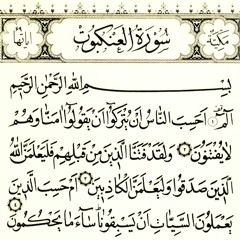 مكية سورة العنكبوت آياتها
بسم الله الرحمن الرحيم
الم ۝ أَحَسِبَ النَّاسُ أَنْ يُتْرَكُوا أَنْ يَقُولُوا آمَنَّا وَهُمْ
لَا يُفْتَنُونَ ۝ وَلَقَدْ فَتَنَّا الَّذِينَ مِنْ قَبْلِهِمْ فَلَيَعْلَمَنَّ اللَّهُ
الَّذِينَ صَدَقُوا وَلَيَعْلَمَنَّ الْكَاذِبِينَ ۝ أَمْ حَسِبَ الَّذِينَ
يَعْمَلُونَ السَّيِّئَاتِ أَنْ يَسْبِقُونَا سَاءَ مَا يَحْكُمُونَ